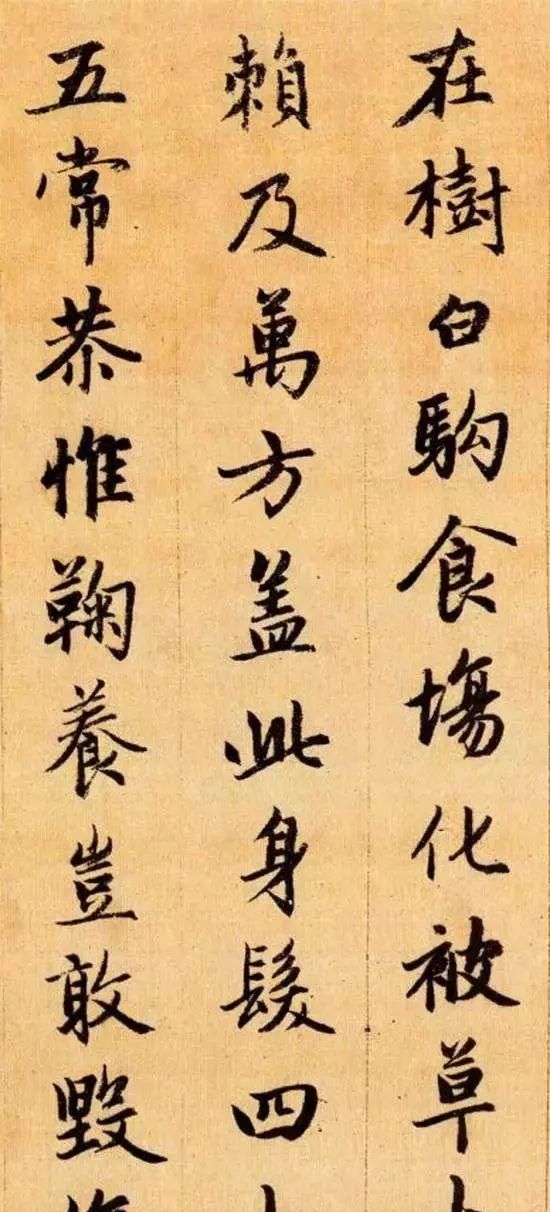 在樹白駒食場化被草
賴及萬方蓋此身髮四
五常恭惟鞠養豈敢毀